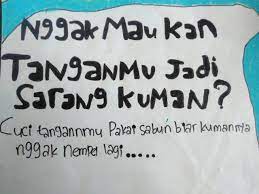 Nggak Mau Kan
Tanganmu Jadi
Sarang Kuman?
Cuci tangannmu Pakai sabun biar kumannya
nggak nempel lagi.....